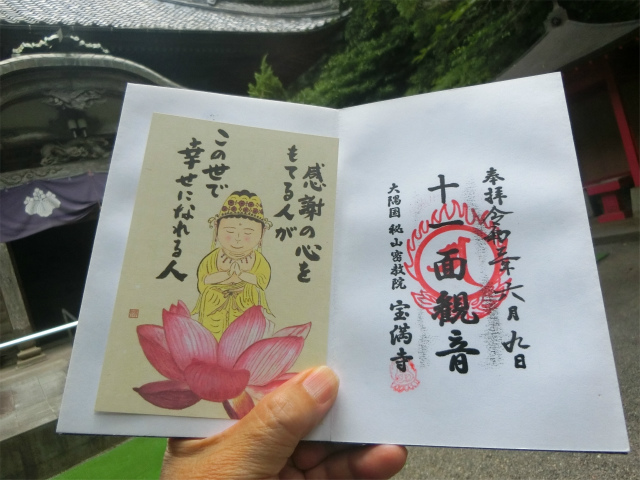 感謝の心を
もてる人が
この世で
幸せになれる人
奉拝 令和三年 六月 九日
十一面観音
大隅国 秘山密教院 宝満寺